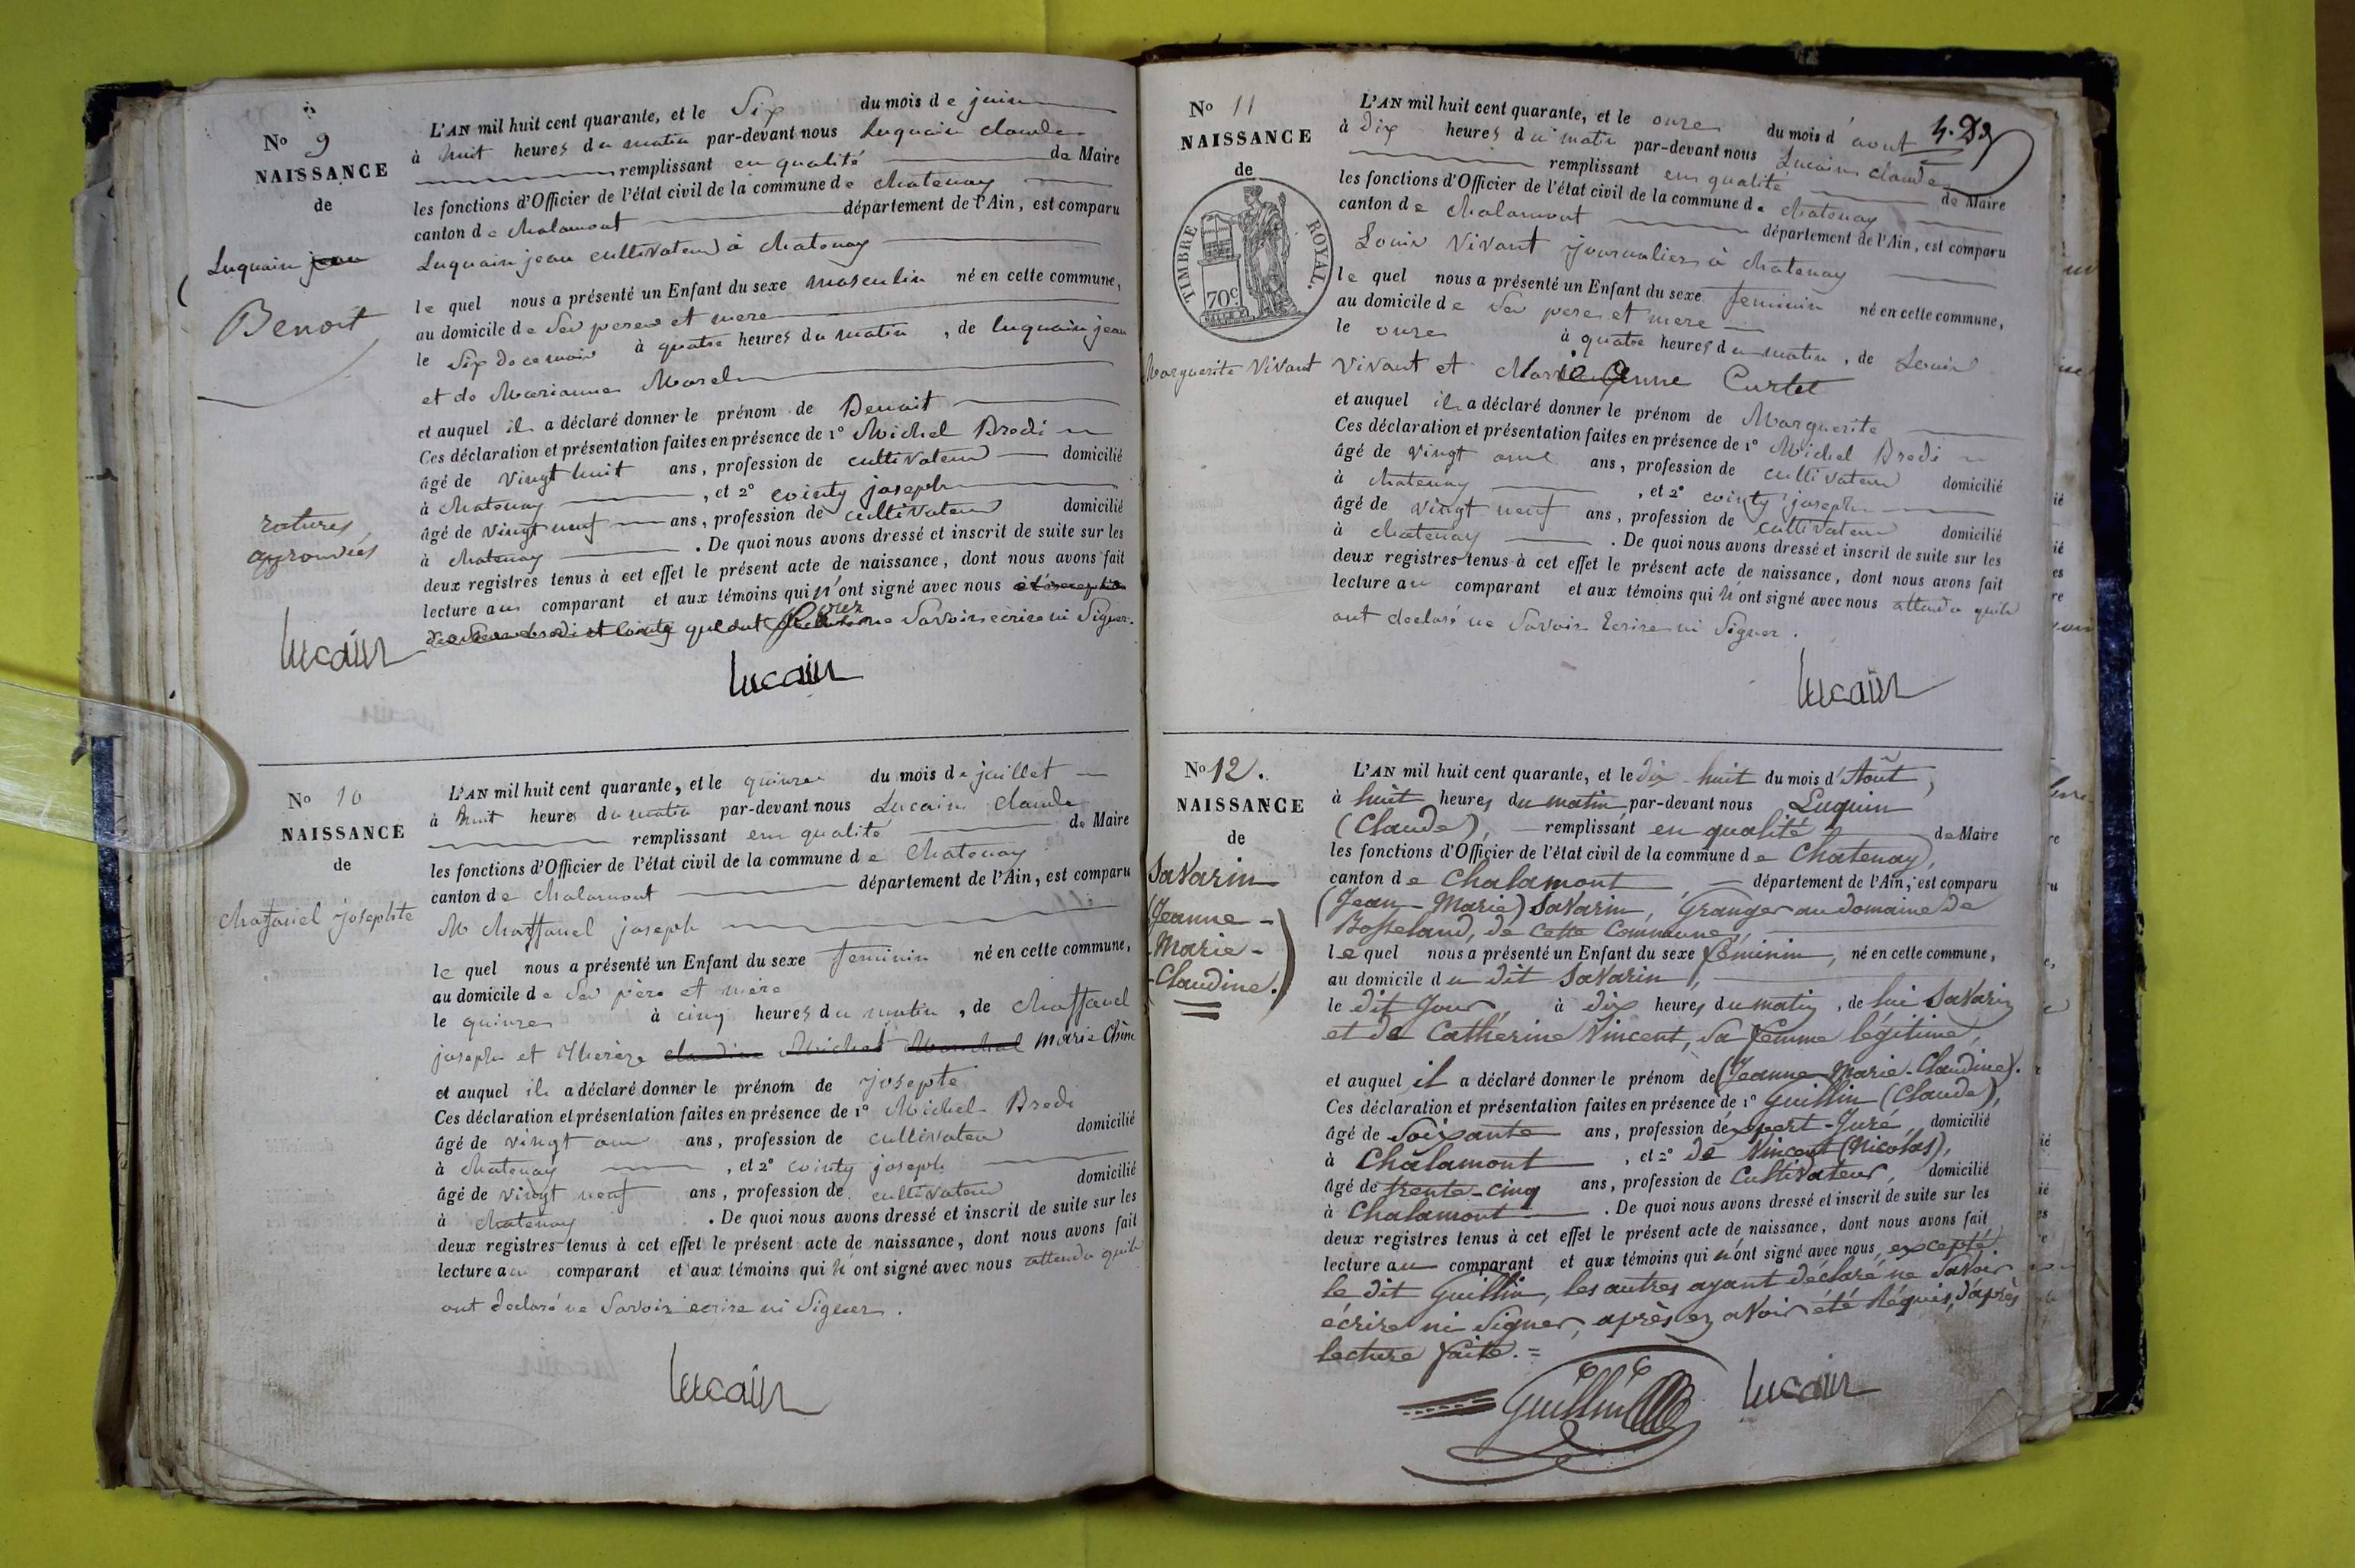 N° 9
NAISSANCE
de
Luquain jean
Benoit
ratures
approuvées
Lucain
L'AN mil huit cent quarante, et le Six du mois de juin
à huit heures du matin par-devant nous Luquain claude
remplissant en qualité de Maire
les fonctions d'Officier de l'état civil de la commune de chatenay
canton de chalamont département de l'Ain, est comparu
Luquain jean cultivateur à chatenay
le quel nous a présenté un Enfant du sexe masculin né en cette commune,
au domicile de Ses peres et mere
le Six de ce mois à quatre heures du matin, de luquain jean
et de Marianne Morel
et auquel il a déclaré donner le prénom de Benoit
Ces déclaration et présentation faites en présence de 1° Michel Bredi
âgé de vingt huit ans, profession de cultivateur domicilié
à chatenay, et 2° cointy joseph
âgé de vingt neuf ans, profession de cultivateur domicilié
à chatenay. De quoi nous avons dressé et inscrit de suite sur les
deux registres tenus à cet effet le présent acte de naissance, dont nous avons fait
lecture au comparant et aux témoins qui n'ont signé avec nous
ne Savoir écrire ni Signer.
Lucain
N° 10
NAISSANCE
de
Chaffanel Josephte
L'AN mil huit cent quarante, et le quinze du mois de juillet
à huit heures du matin par-devant nous Lucain claude
remplissant en qualité de Maire
les fonctions d'Officier de l'état civil de la commune de Chatenay
canton de chalamont département de l'Ain, est comparu
M chaffanel joseph
le quel nous a présenté un Enfant du sexe feminin né en cette commune,
au domicile de Ses père et mère
le quinze à cinq heures du matin, de chaffanel
joseph et Thérèze claudine Michel Marechal Marie Chêne
et auquel il a déclaré donner le prénom de josepte
Ces déclaration et présentation faites en présence de 1° Michel Bredi
âgé de vingt ans, profession de cultivateur domicilié
à chatenay, et 2° cointy joseph
âgé de vingt neuf ans, profession de cultivateur domicilié
à chatenay. De quoi nous avons dressé et inscrit de suite sur les
deux registres tenus à cet effet le présent acte de naissance, dont nous avons fait
lecture au comparant et aux témoins qui n ont signé avec nous attendu quils
ont declaré ne Savoir ecrire ni Signer.
Lucain
N° 11
NAISSANCE
de
TIMBRE ROYAL.
70c
Marguerite Vivant
L'AN mil huit cent quarante, et le onze du mois d'aout
à dix heures du matin par-devant nous Lucain claude
remplissant en qualité de Maire
les fonctions d'Officier de l'état civil de la commune de chatenay
canton de chalamont département de l'Ain, est comparu
Louis Vivant journalier à chatenay
le quel nous a présenté un Enfant du sexe feminin né en cette commune,
au domicile de Ses pere et mere
le onze à quatre heures du matin, de Louis
Vivant et Marie Anne Curtet
et auquel il a déclaré donner le prénom de Marguerite
Ces déclaration et présentation faites en présence de 1° Michel Bredi
âgé de vingt ans, profession de cultivateur domicilié
à chatenay, et 2° cointy joseph
âgé de vingt neuf ans, profession de cultivateur domicilié
à chatenay. De quoi nous avons dressé et inscrit de suite sur les
deux registres tenus à cet effet le présent acte de naissance, dont nous avons fait
lecture au comparant et aux témoins qui n ont signé avec nous attendu quils
ont declaré ne Savoir Ecrire ni Signer.
Lucain
N° 12.
NAISSANCE
de
Savarin
(Jeanne-
-Marie-
-Claudine.)
L'AN mil huit cent quarante, et le dix-huit du mois d'Août,
à huit heures du matin par-devant nous Luquin
(Claude), remplissant en qualité de Maire
les fonctions d'Officier de l'état civil de la commune de Chatenay,
canton de Chalamont, département de l'Ain, est comparu
(Jean-Marie) Savarin, Granger au domaine de
Bosseland, de cette Commune,
le quel nous a présenté un Enfant du sexe féminin, né en cette commune,
au domicile du dit Savarin,
le dit Jour, à dix heures du matin, de lui Savarin
et de Catherine Vincent, sa femme légitime,
et auquel il a déclaré donner le prénom de (Jeanne-Marie-Claudine).
Ces déclaration et présentation faites en présence de 1° Guillin (Claude),
âgé de Soixante ans, profession d'expert-Juré, domicilié
à Chalamont, et 2° de Vincent (Nicolas),
âgé de trente-cinq ans, profession de Cultivateur, domicilié
à Chalamont. De quoi nous avons dressé et inscrit de suite sur les
deux registres tenus à cet effet le présent acte de naissance, dont nous avons fait
lecture au comparant et aux témoins qui n'ont signé avec nous, excepté
le dit Guillin, les autres ayant déclaré ne savoir
écrire ni Signer, après en avoir été Réquis, d'après
lecture faite.=
Guillin Lucain